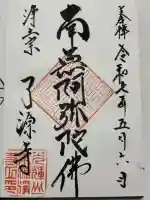 奉拝 令和七年五月六日
南無阿弥陀佛
浄宗
了源寺